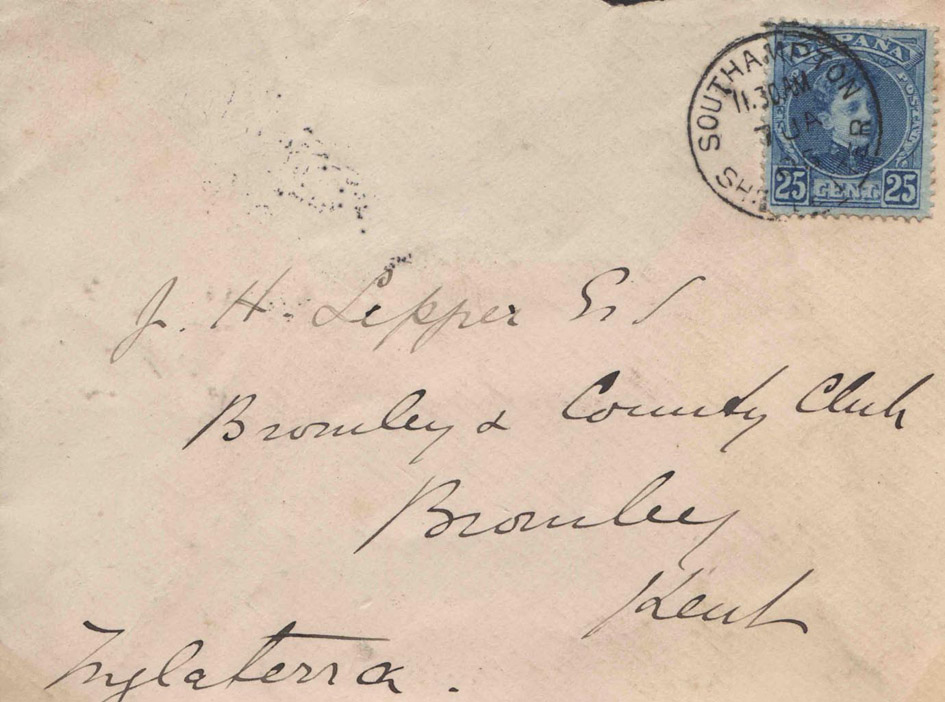 ESPAÑA
SOUTHAMPTON
11.30AM
7 JA
SH
25 CENT. 25
J. H. Lepper Esq
Bromley & County Club
Bromley
Kent
Inglaterra.